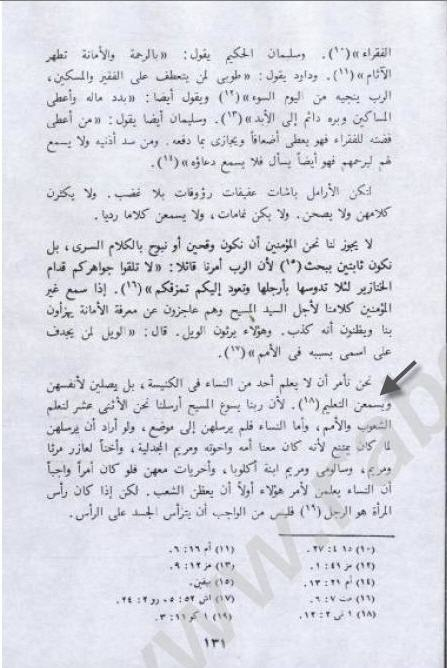 الفقراء»(١٠). وسليمان الحكيم يقول: «بالرحمة والأمانة تطهر
الآثام»(١١). وداود يقول: «طوبى لمن يتعطف على الفقير والمسكين،
الرب ينجيه من اليوم السوء»(١٢) ويقول أيضا: «بدد ماله وأعطى
المساكين وبره دائم إلى الأبد»(١٣). وسليمان أيضا يقول: «من أعطى
فضته للفقراء فهو يعطى أضعافاً ويجازى بما دفعه. ومن سد أذنيه ولا يسمع
لهم ليرحمهم فهو أيضاً يسأل فلا يسمع دعاؤه»(١٤).
لتكن الأرامل باشات عفيفات رؤوفات بلا غضب. ولا يكثرن
كلامهن ولا يصحن. ولا يكن نمامات، ولا يسمعن كلاما رديا.
لا يجوز لنا نحن المؤمنين أن نكون وقحين أو نبوح بالكلام السرى، بل
نكون ثابتين ببحث(١٥) لأن الرب أمرنا قائلا: «لا تلقوا جواهركم قدام
الخنازير لئلا تدوسها بأرجلها وتعود إليكم تمزقكم»(١٦). إذا سمع غير
المؤمنين كلامنا لأجل السيد المسيح وهم عاجزون عن معرفة الأمانة يهزأون
بنا ويظنون أنه كذب. وهؤلاء يرثون الويل. قال: «الويل لمن يجدف
على اسمى بسببه فى الأمم»(١٧).
نحن نأمر أن لا يعلم أحد من النساء فى الكنيسة، بل يصلين لأنفسهن
ويسمعن التعليم(١٨). لأن ربنا يسوع المسيح أرسلنا نحن الأثنى عشر لنعلم
الشعوب والأمم، وأما النساء فلم يرسلهن إلى موضع، ولو أراد أن يرسلهن
لما كان يمتنع لأنه كان معنا أمه واخوته ومريم المجدلية، وأختا لعازر مرثا
ومريم، وسالومى ومريم ابنة أكلوبا، وأخريات معهن فلو كان أمراً واجباً
أن النساء يعلمن لأمر هؤلاء أولاً أن يعظن الشعب. لكن إذا كان رأس
المرأة هو الرجل(١٩) فليس من الواجب أن يترأس الجسد على الرأس.
(١٠) دا ٤: ٢٧. (١١) أم ١٦: ٦.
(١٢) مز ٤١: ١. (١٣) مز ١١٢: ٩.
(١٤) أم ٢١: ١٣. (١٥) بيقين.
(١٦) مت ٧: ٦. (١٧) اش ٥٢: ٥، رو ٢: ٢٤.
(١٨) ١ تى ٢: ١٢. (١٩) ١ كو ١١: ٣.
١٣١